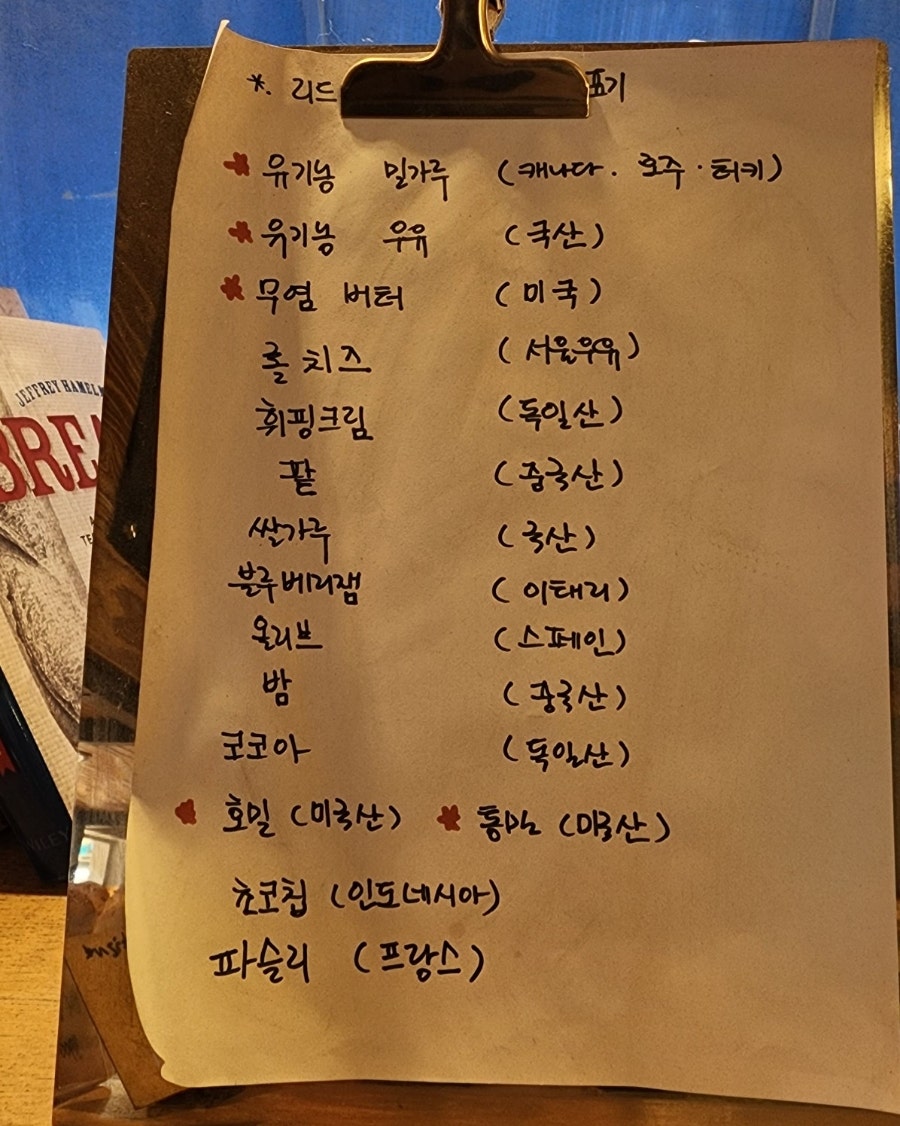 *. 리드 표기
* 유기농 밀가루 (캐나다 · 호주 · 터키)
* 유기농 우유 (국산)
* 무염 버터 (미국)
롤치즈 (서울우유)
휘핑크림 (독일산)
팥 (중국산)
쌀가루 (국산)
블루베리잼 (이태리)
올리브 (스페인)
밤 (중국산)
코코아 (독일산)
* 호밀 (미국산) * 통밀 (미국산)
초코칩 (인도네시아)
파슬리 (프랑스)
JEFFREY HAMEL
BREA